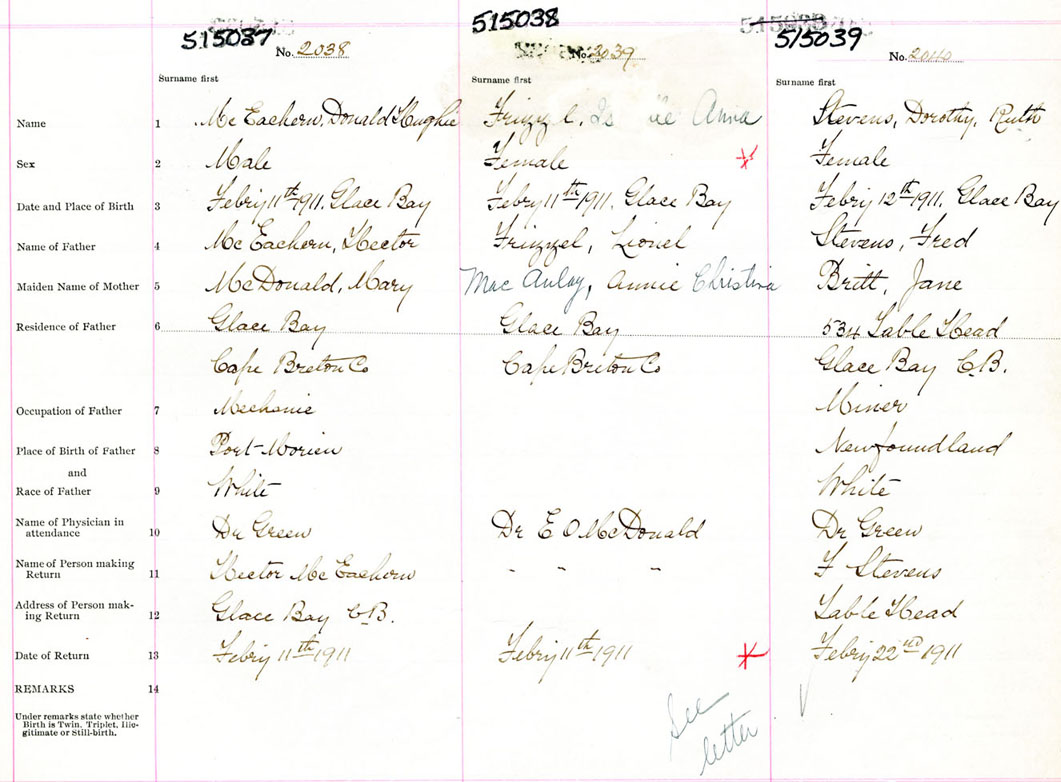 515037
515038
515039
No. 2038
No. 2039
No. 2040
Surname first
Surname first
Surname first
Name 1 Mc Eachern, Donald Hughie Frizzel, Anna Stevens, Dorothy, Ruth
Sex 2 Male Female Female
Date and Place of Birth 3 Febry 11th 1911. Glace Bay Febry 11th 1911. Glace Bay Febry 12th 1911. Glace Bay
Name of Father 4 Mc Eachern, Hector Frizzel, Lionel Stevens, Fred
Maiden Name of Mother 5 McDonald, Mary Mac Aulay, Annie Christina Britt, Jane
Residence of Father 6 Glace Bay Glace Bay 534 Table Head
Cape Breton Co Cape Briton Co Glace Bay C.B.
Occupation of Father 7 Mechanic Miner
Place of Birth of Father 8 Port-Morien Newfoundland
and
Race of Father 9 White White
Name of Physician in
attendance 10 Dr Green Dr E O McDonald Dr Green
Name of Person making
Return 11 Hector Mc Eachern " " " F Stevens
Address of Person mak-
ing Return 12 Glace Bay C.B. Table Head
Date of Return 13 Febry 11th 1911 Febry 11th 1911 Febry 22nd 1911
REMARKS 14
Under remarks state whether
Birth is Twin, Triplet, Ille-
gitimate or Still-birth.
See
letter